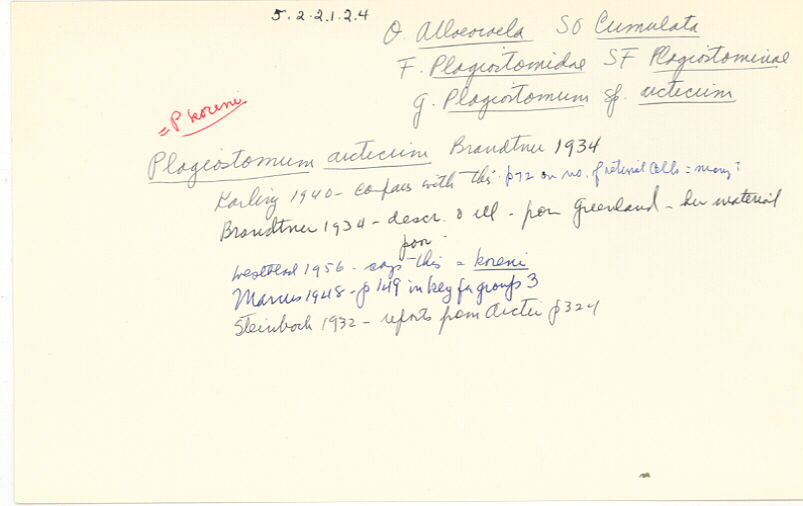 5.2.2.1.2.4
O. Alloeocoela SO Cumulata
F. Plagiostomidae SF Plagiostominae
g. Plagiostomum sp. arcticum
= P koreni
Plagiostomum arcticum Brandtner 1934
Karling 1940 - compares with this p72 on no. of retinal cells = many?
Brandtner 1934 - descr. & ill - from Greenland - her material
poor
Westblad 1956 - says this = koreni
Marcus 1948 - p 149 in key for groups 3
Steinbock 1932 - reports from Arctic p324